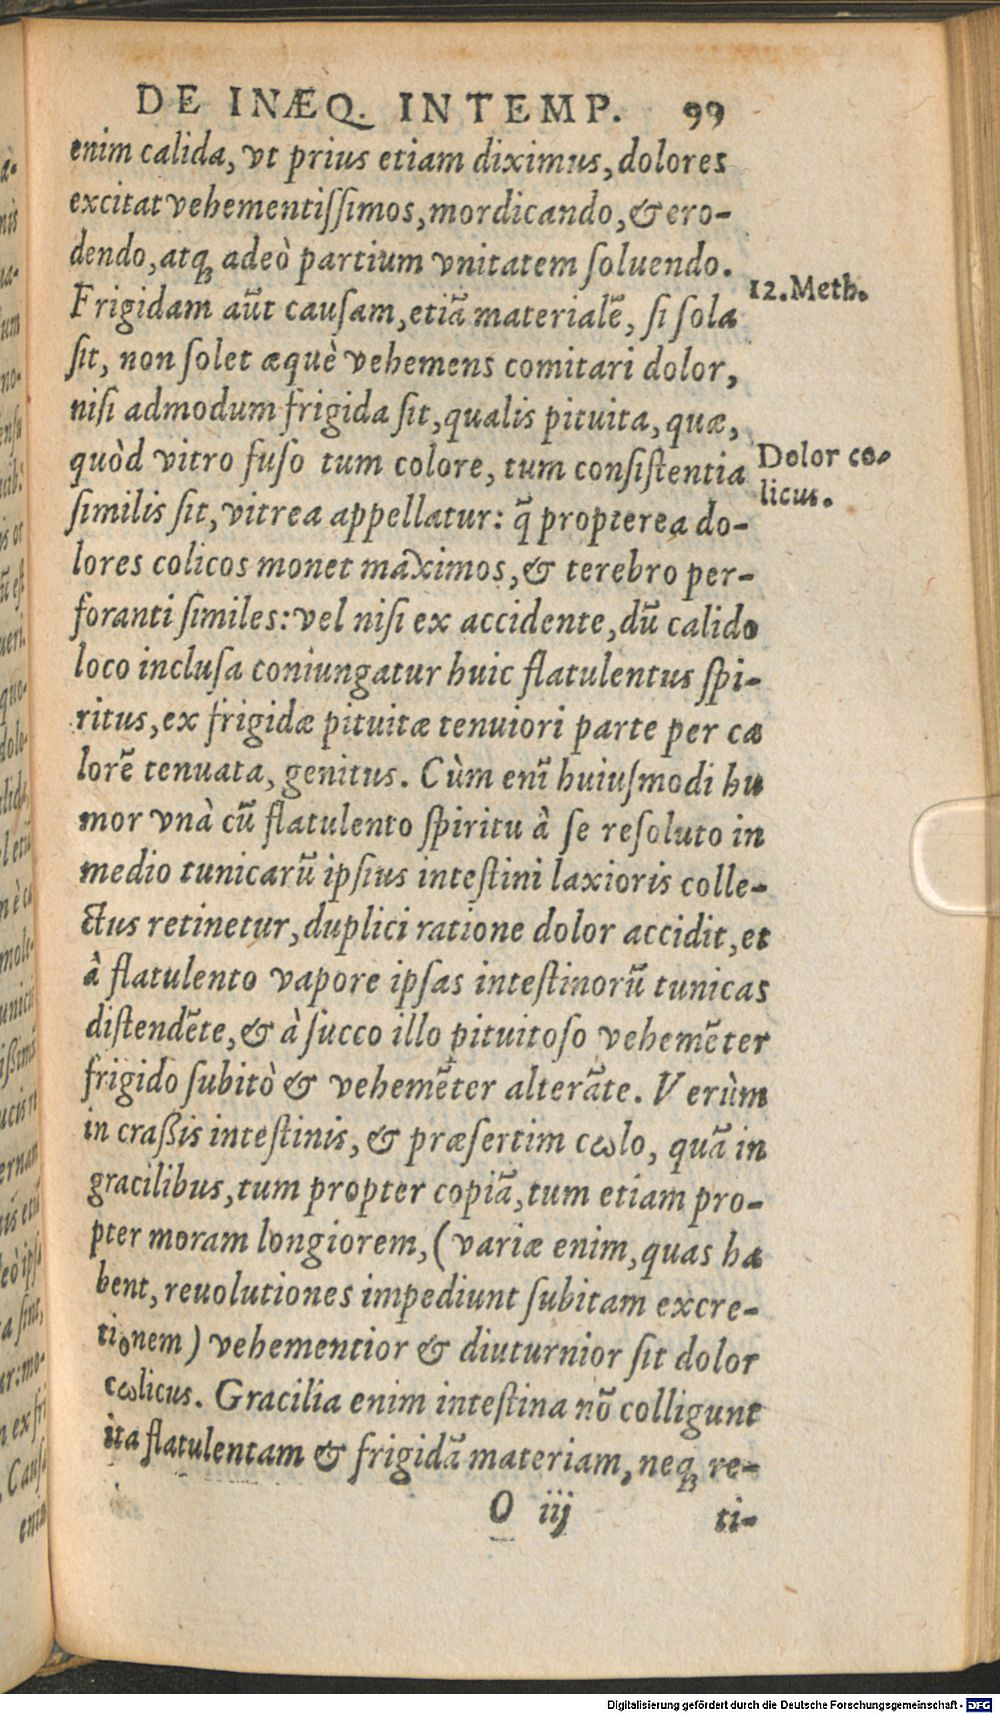 DE INÆQ. INTEMP. 99
enim calida, vt prius etiam diximus, dolores
excitat vehementiſſimos, mordicando, & ero-
dendo, atqꝫ adeò partium vnitatem ſoluendo.
12. Meth.
Frigidam aũt cauſam, etiã materialẽ, ſi ſola
ſit, non ſolet æquè vehemens comitari dolor,
niſi admodum frigida ſit, qualis pituita, quæ,
Dolor co-
licus.
quòd vitro fuſo tum colore, tum conſiſtentia
ſimilis ſit, vitrea appellatur: q̃ propterea do-
lores colicos monet maximos, & terebro per-
foranti ſimiles: vel niſi ex accidente, dũ calido
loco incluſa coniungatur huic flatulentus ſpi-
ritus, ex frigidæ pituitæ tenuiori parte per ca
lorẽ tenuata, genitus. Cùm enĩ huiuſmodi hu
mor vnà cũ flatulento ſpiritu â ſe reſoluto in
medio tunicarũ ipſius inteſtini laxioris colle-
ctus retinetur, duplici ratione dolor accidit, et
à flatulento vapore ipſas inteſtinorũ tunicas
diſtendẽte, & à ſucco illo pituitoſo vehemẽter
frigido ſubitò & vehemẽter alterãte. Verùm
in craßis inteſtinis, & præſertim cωlo, quã in
gracilibus, tum propter copiã, tum etiam pro-
pter moram longiorem, (variæ enim, quas ha
bent, reuolutiones impediunt ſubitam excre-
tionem) vehementior & diuturnior ſit dolor
cωlicus. Gracilia enim inteſtina nõ colligunt
ita flatulentam & frigidã materiam, neqꝫ re-
O iij ti-
Digitalisierung gefördert durch die Deutsche Forschungsgemeinschaft - DFG